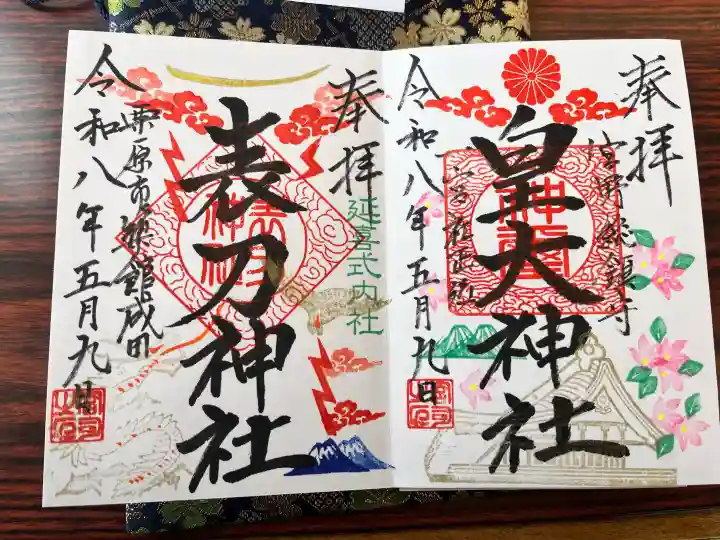 奉拝
皇大神社
令和八年五月九日
奉拝
延喜式内社
表刀神社
栗原市築館成田
令和八年五月九日